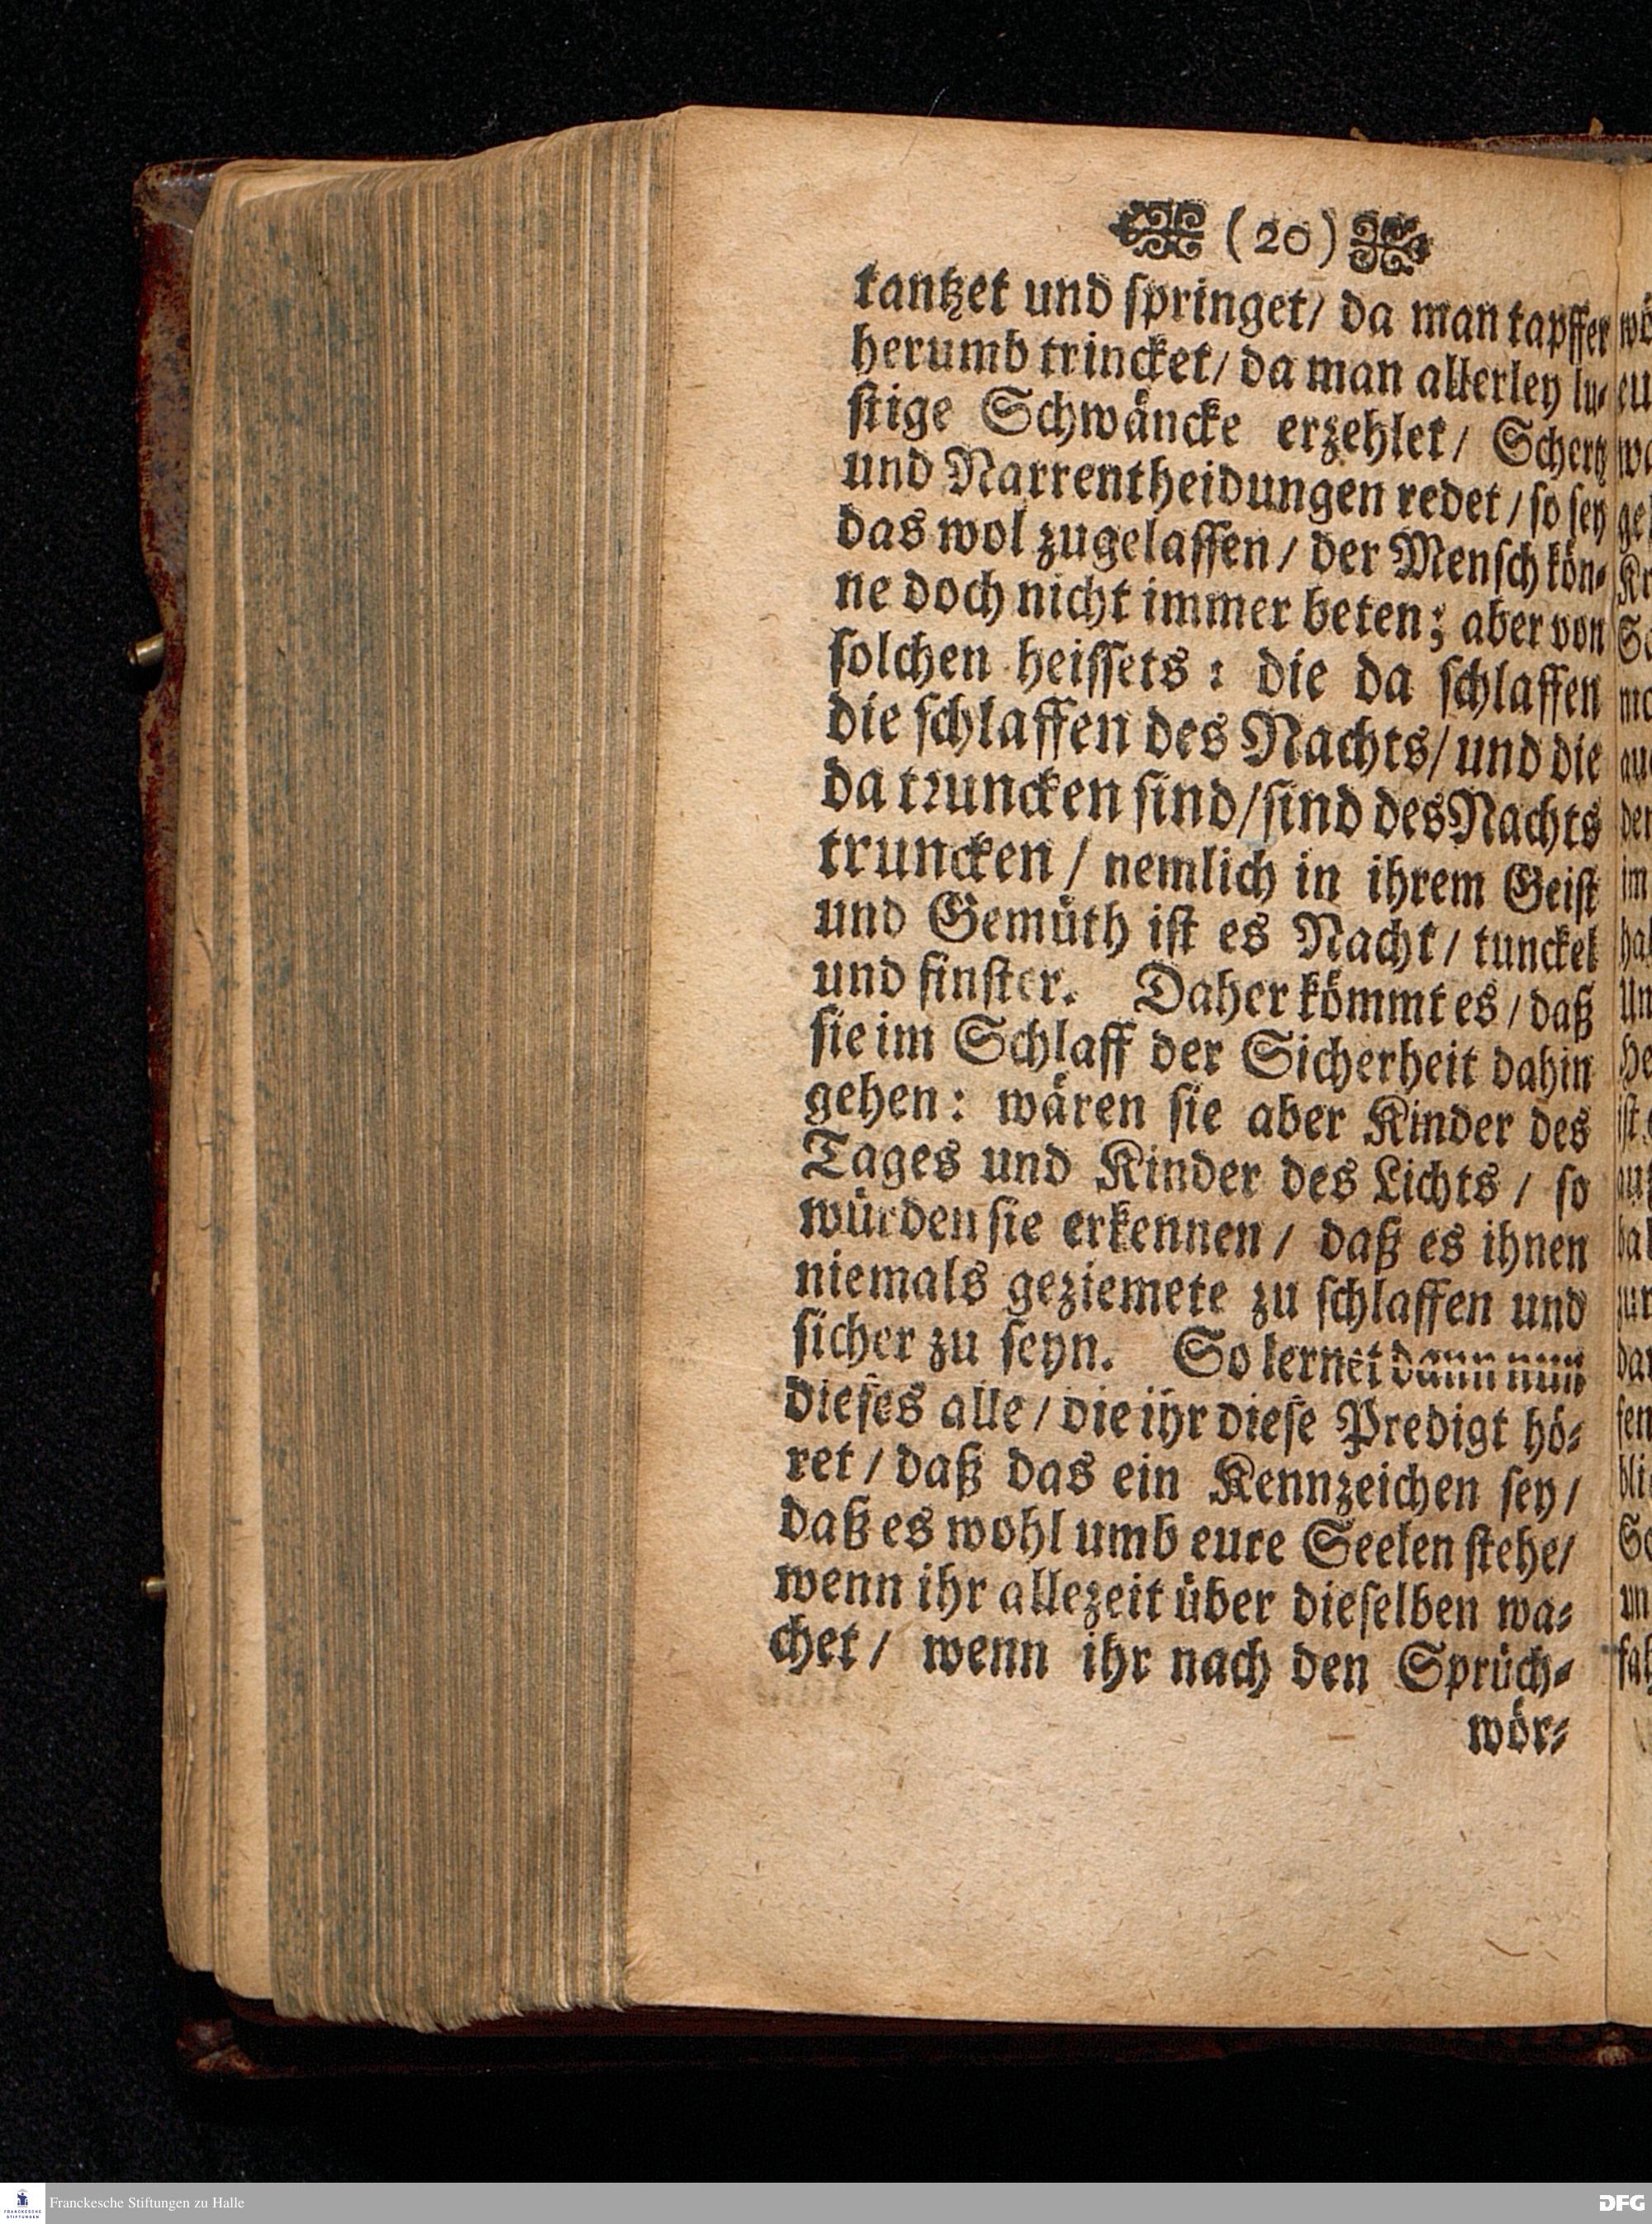 (20)
tantzet und springet/ da man tapffer
herumb trincket/ da man allerley lu-
stige Schwäncke erzehlet/ Schertz
und Narrentheidungen redet/ so sey
das wol zugelassen/ der Mensch kön-
ne doch nicht immer beten; aber von
solchen heissets: die da schlaffen
die schlaffen des Nachts/ und die
da truncken sind/ sind des Nachts
truncken/ nemlich in ihrem Geist
und Gemüth ist es Nacht/ tunckel
und finster. Daher kömmt es/ daß
sie im Schlaff der Sicherheit dahin
gehen: wären sie aber Kinder des
Tages und Kinder des Lichts/ so
würden sie erkennen/ daß es ihnen
niemals geziemete zu schlaffen und
sicher zu seyn. So lernet dann nun
dieses alle/ die ihr diese Predigt hö-
ret/ daß das ein Kennzeichen sey/
daß es wohl umb eure Seelen stehe/
wenn ihr allezeit über dieselben wa-
chet/ wenn ihr nach den Sprüch-
wör-
Franckesche Stiftungen zu Halle
DFG